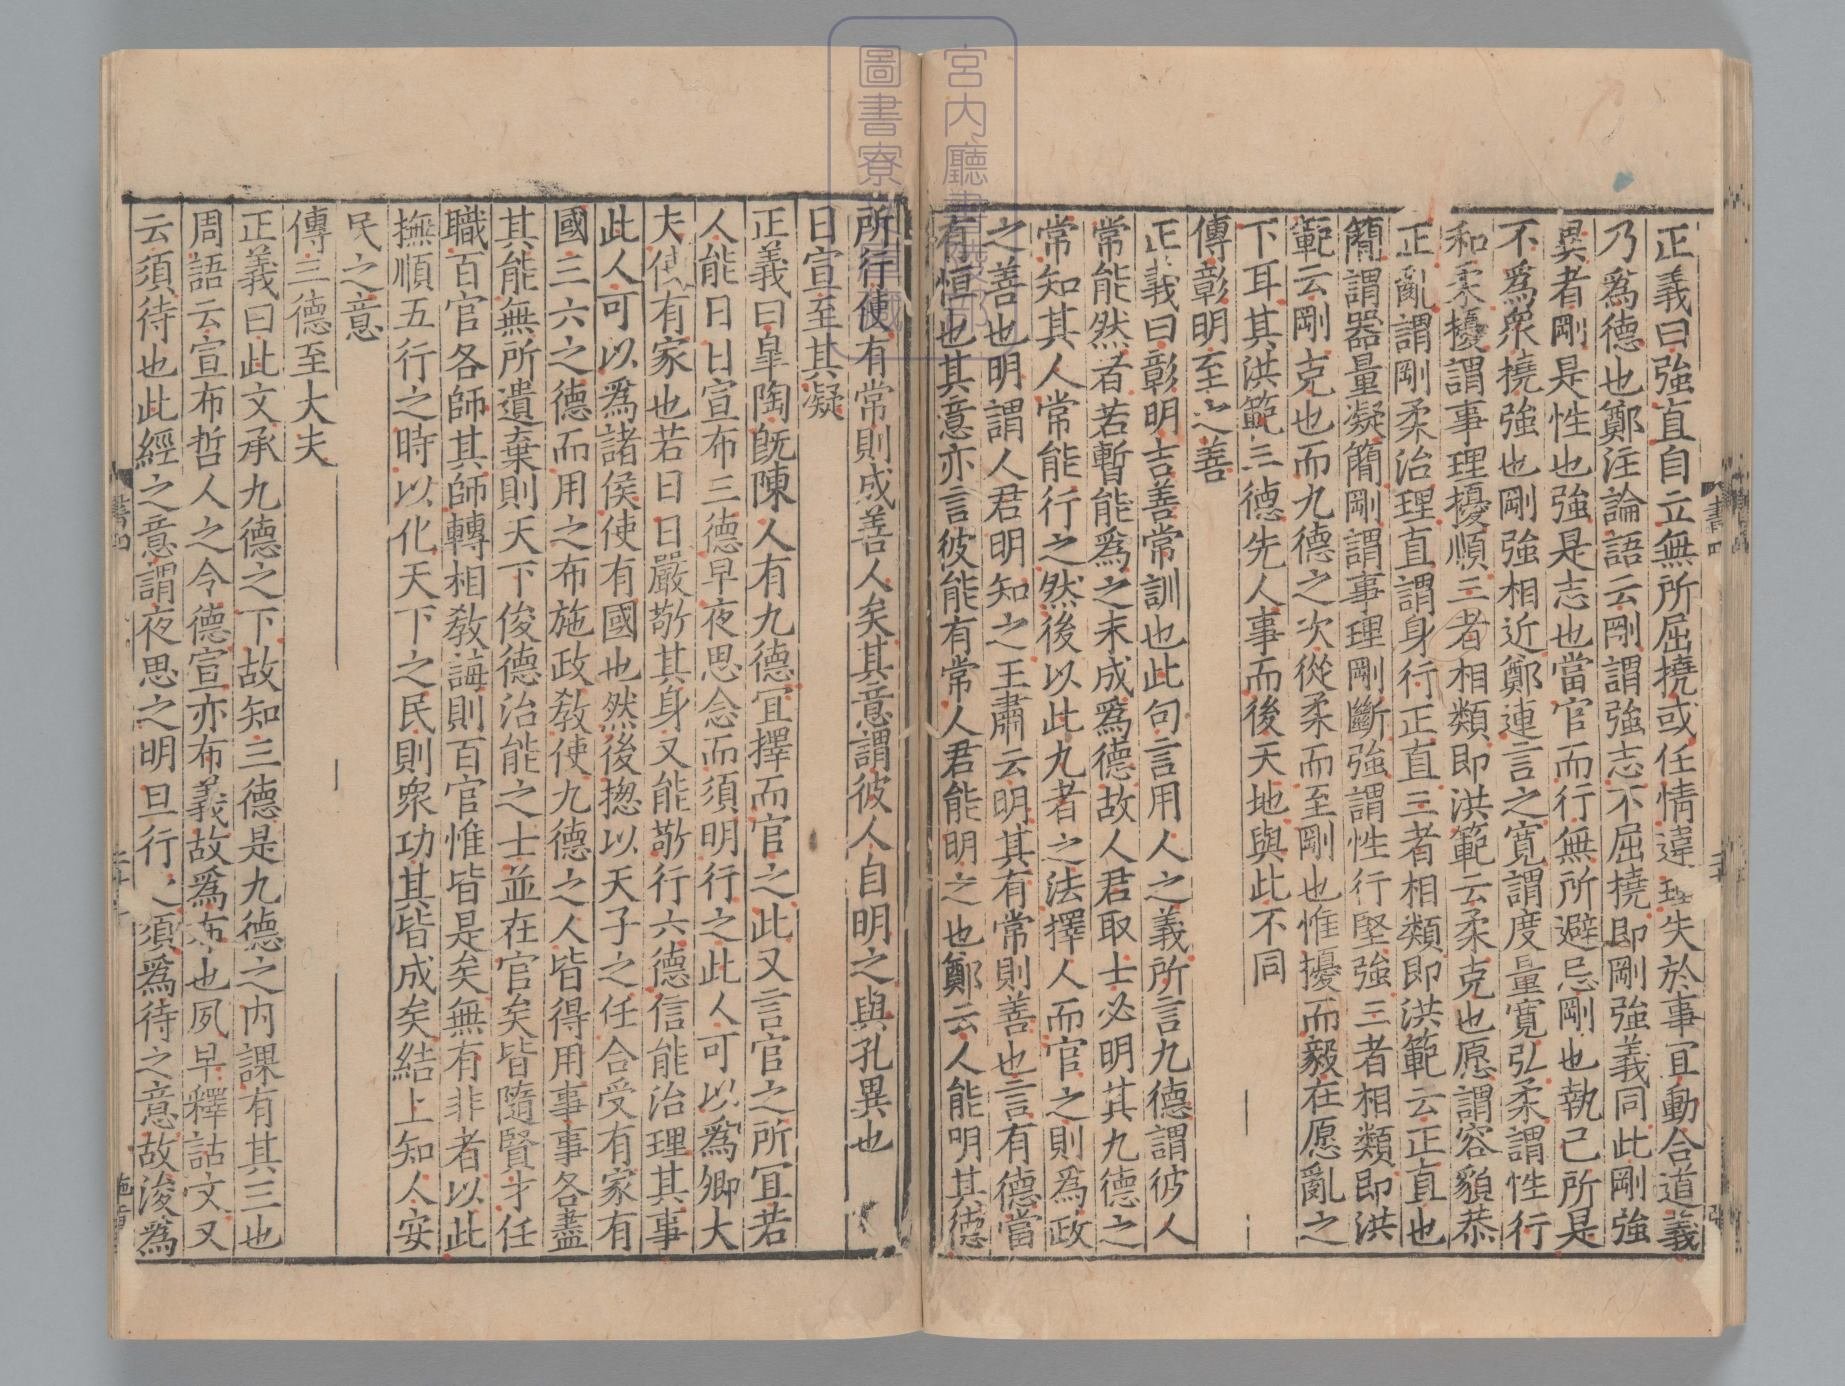 正義曰強直自立無所屈撓或任情違理失於事宜動合道義
乃爲德也鄭注論語云剛謂強志不屈撓即剛強義同此剛強
異者剛是性也強是志也當官而行無所避忌剛也執己所是
不爲衆撓強也剛強相近鄭連言之寬謂度量寬弘柔謂性行
和柔擾謂事理擾順三者相類即洪範云柔克也愿謂容貌恭
正亂謂剛柔治理直謂身行正直三者相類即洪範云正直也
簡謂器量凝簡剛謂事理剛斷強謂性行堅強三者相類即洪
範云剛克也而九德之次從柔而至剛也惟擾而毅在愿亂之
下耳其洪範三德先人事而後天地與此不同
傳彰明至之善
正義曰彰明吉善常訓也此句言用人之義所言九德謂彼人
常能然者若暫能爲之未成爲德故人君取士必明其九德之
常知其人常能行之然後以此九者之法擇人而官之則爲政
之善也明謂人君明知之王肅云明其有常則善也言有德當
有恒也其意亦言彼能有常人君能明之也鄭云人能明其德
所行使有常則成善人矣其意謂彼人自明之與孔異也
日宣至其凝
正義曰皐陶既陳人有九德冝擇而官之此又言官之所冝若
人能日日宣布三德早夜思念而須明行之此人可以爲卿大
夫使有家也若日日嚴敬其身又能敬行六德信能治理其事
此人可以爲諸侯使有國也然後揔以天子之任合受有家有
國三六之德而用之布施政教使九德之人皆得用事事各盡
其能無所遺棄則天下俊德治能之士並在官矣皆隨賢才任
職百官各師其師轉相教誨則百官惟皆是矣無有非者以此
撫順五行之時以化天下之民則衆功其皆成矣結上知人安
民之意
傳三德至大夫
正義曰此文承九德之下故知三德是九德之內課有其三也
周語云宣布哲人之令德宣亦布義故爲布也夙早釋詁文又
云須待也此經之意謂夜思之明旦行之須爲待之意故浚爲
書四
宮内廳書陵部
圖書寮